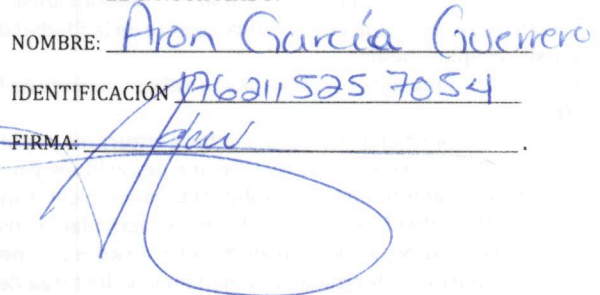 NOMBRE: Aron García Guerrero
IDENTIFICACIÓN 176211525 7054
FIRMA: